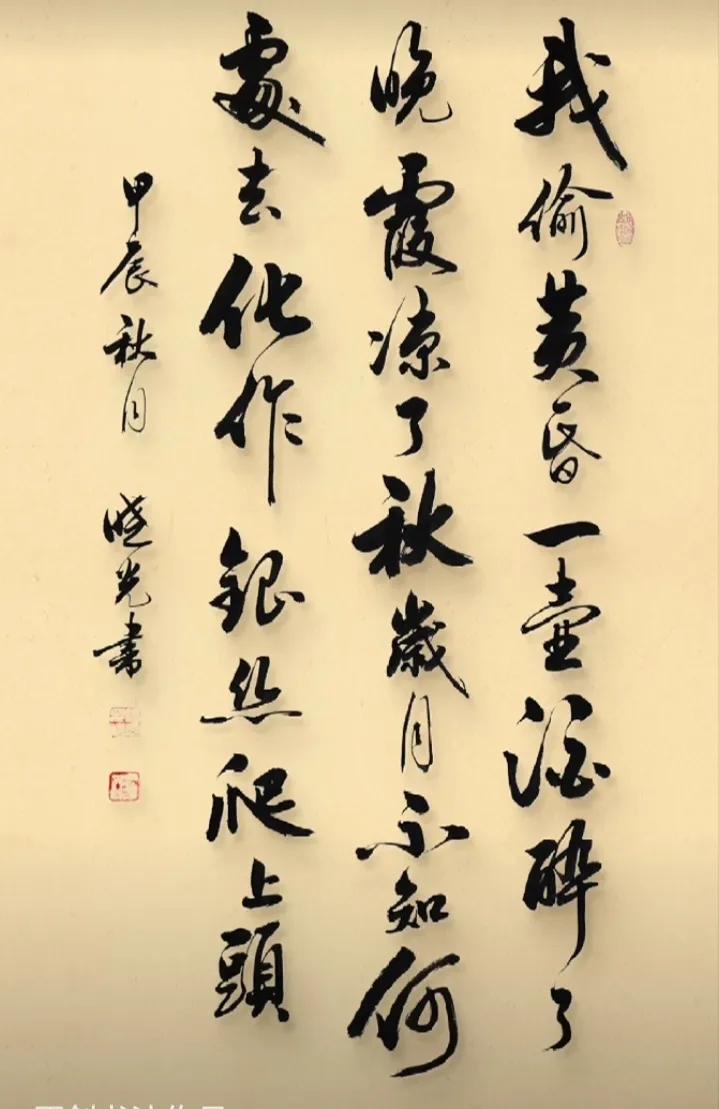 我偷黄昏一壶酒醉了
晚霞凉了秋歲月不知何
處去化作銀丝爬上頭
甲辰秋月 晓光書